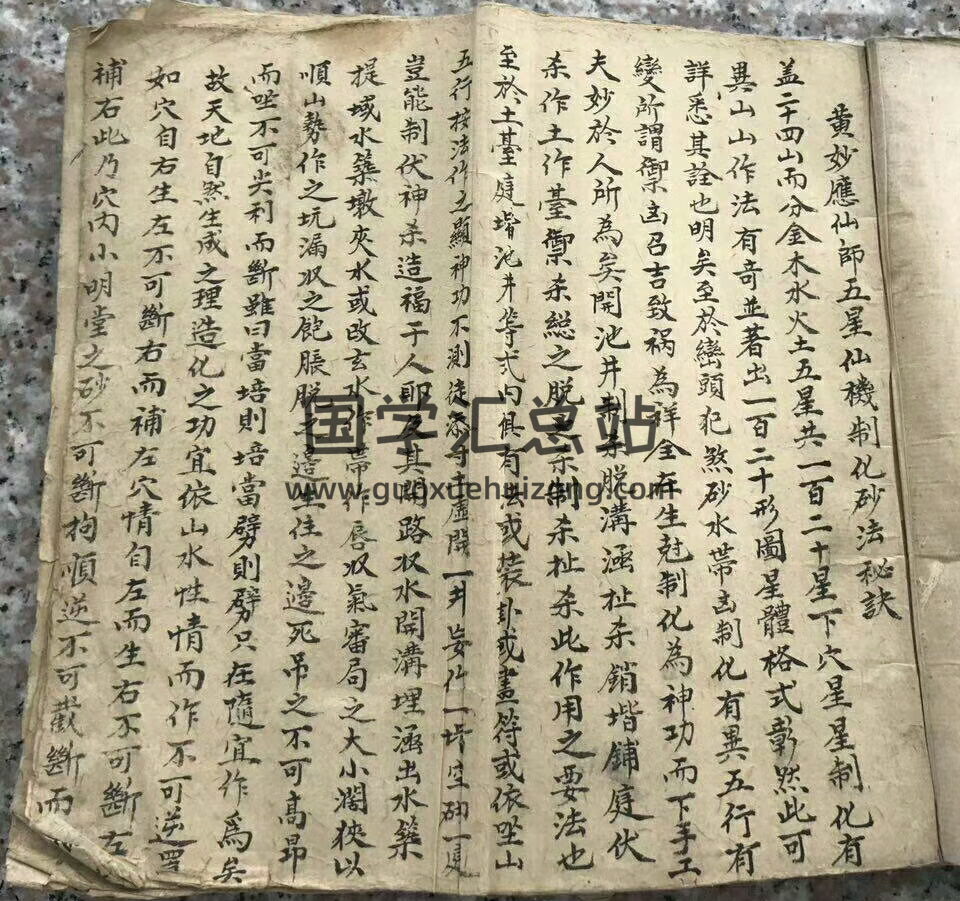 黄妙應仙師五星仙機制化砂法秘訣
盖二十四山而分金木水火土五星共一百二十星下穴星星制化有
異山山作法有奇並著出一百二十形圖星體格式彰然此可
詳悉其詮也明矣至於巒頭犯煞砂水帶凶制化有異五行有
變所謂禦凶召吉致禍為祥全在生尅制化為神功而下手工
夫妙於人所為矣開池井制杀脫溝涵扯杀銷堦鋪庭伏
杀作土作臺禦杀総之脫杀制杀扯杀此作用之要法也
至於土臺庭堦池井等式内俱有法或裝卦或畫符或依坐山
五行按法作之顯神功不測徒 一井妄作一 一
豈能制伏神杀造福于人耶 其開路収水開溝埋涵出水築
提域水築墩夾水或改玄水作帶作唇収氣審局之大小濶狹以
順山勢作之坑漏収之飽脹脫之邉生住之邉死吊之不可高昂
而坐不可尖利而斷雖曰當培則培當劈則劈只在隨宜作為矣
故天地自然生成之理造化之功宜依山水性情而作不可逆
如穴自右生左不可斷右而補左穴情自左而生右不可斷左
補右此乃穴内小明堂之砂不可斷拘順逆不可截斷而
国学汇总站
www.guoxuehuizong.com